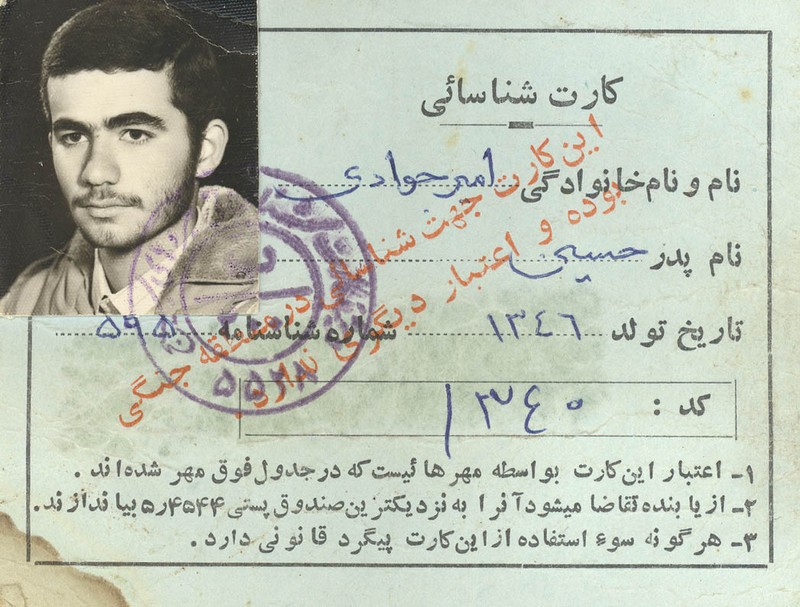 کارت شناسائی
نام و نام خانوادگی امیر جوادی
نام پدر حسین
تاریخ تولد ١٣٤٦ شماره شناسنامه ۵۹۵
کد :
این کارت جهت شناسائی در منطقه جنگی
بوده و اعتبار دیگری ندارد.
۱ـ اعتبار این کارت بواسطه مهرهائیست که در جدول فوق مهر شده‌اند .
۲ـ از یابنده تقاضا میشود آنرا به نزدیکترین صندوق پستی ۵ر۴۵۴۴ بیاندازند.
۳ـ هرگونه سوء استفاده از این کارت پیگرد قانونی دارد .